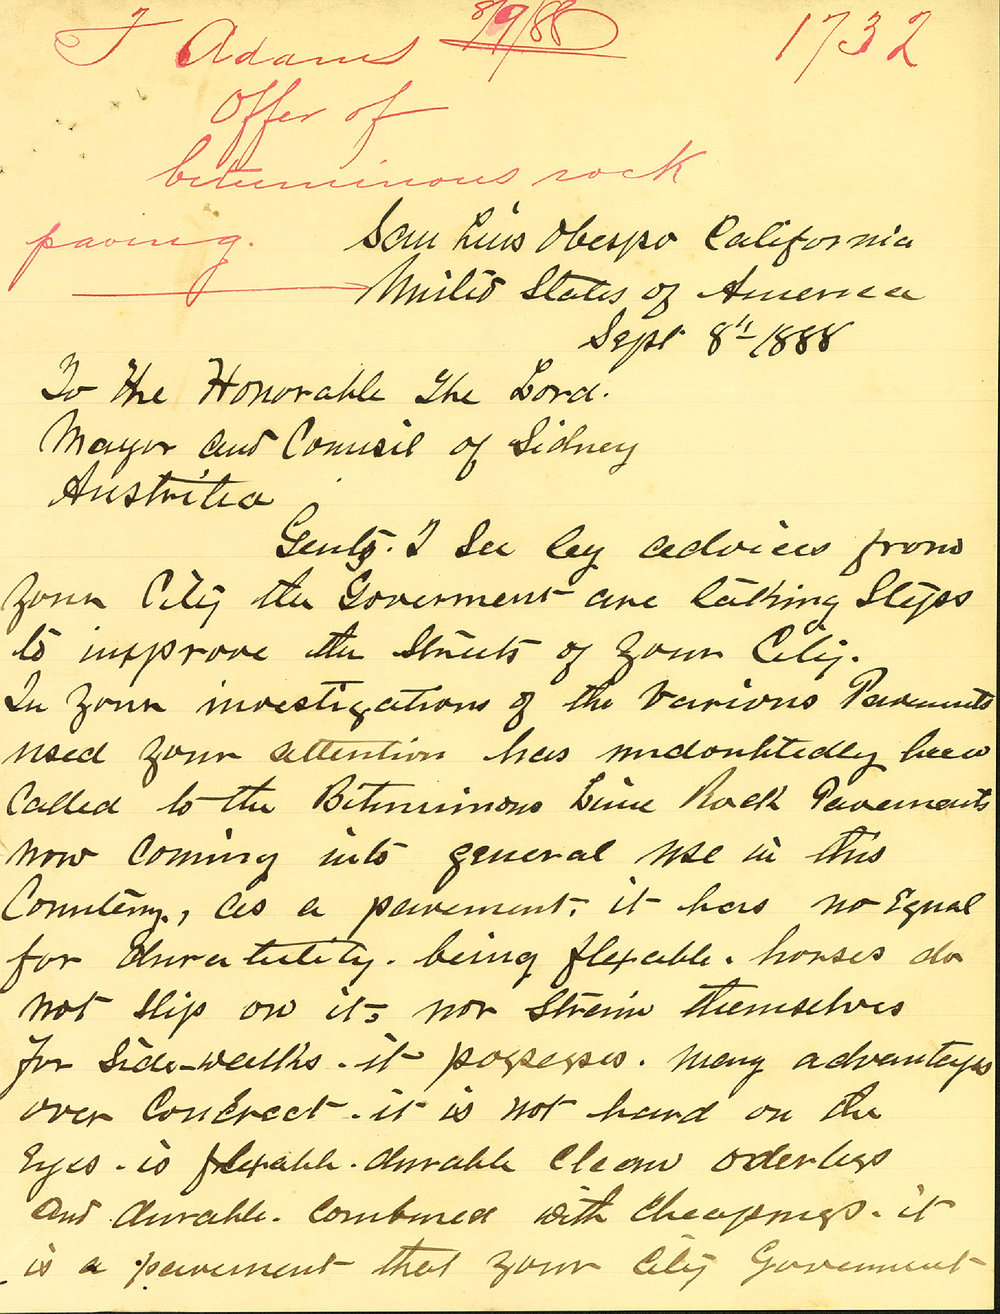 T Adams 8/9/88 1732
Offer of
bituminous rock
paving.
San Luis Obespo California
United States of America
Sept 8th 1888
To the Honorable The Lord.
Mayor and Counsil of Sidney
Austrilia
Gents. I See by advices from
your City the Goverment are taking Steps
to improve the Streets of your City.
In your investigations of the Various Pavements
used your attention has undoubtedly been
Called to the Bituminous Lime Rock Pavements
now coming into general use in this
Country, as a pavement, it has no Equal
for durability. being flexable. horses do
not slip on it, nor Strain themselves
for Side-walks. it possesses. many advantages
over Concreet. it is not hard on the
Eyes. is flexable. durable clean oderless
and durable. combined with cheapness. it
is a pavement that your City Goverment